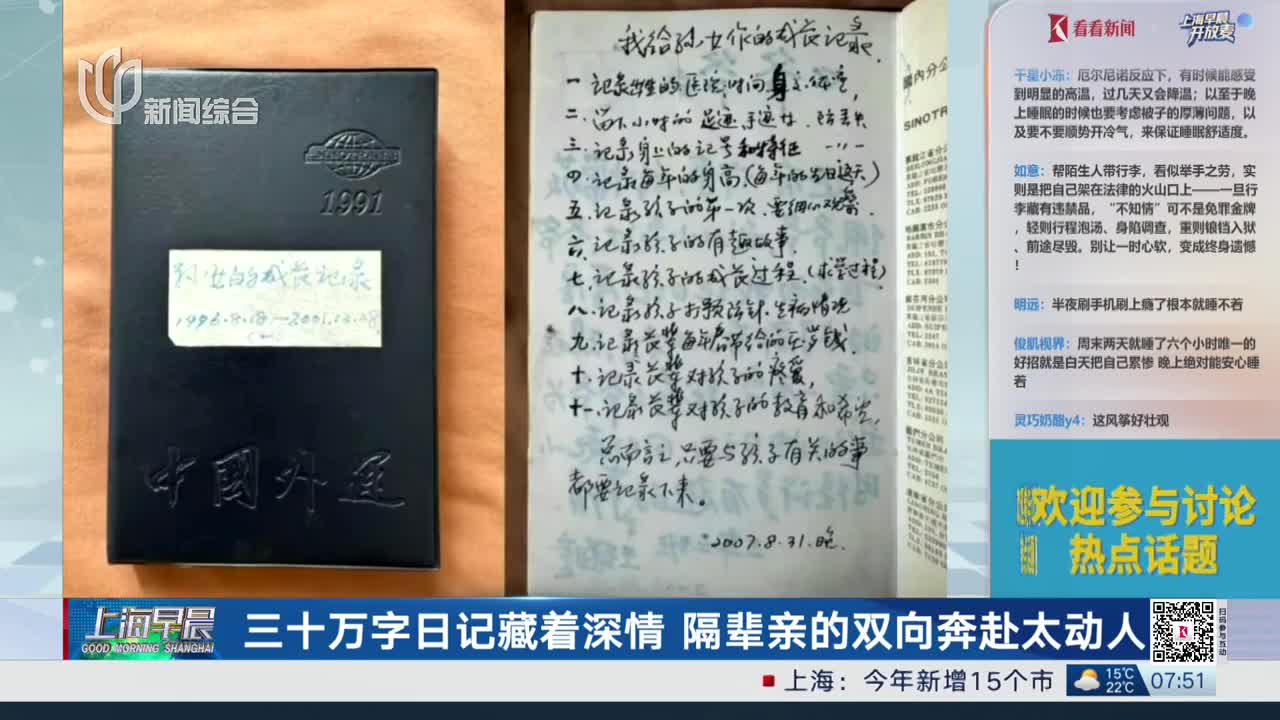 新闻综合
1991
孙女的成长记录
中國外运
我给孙女作的成长记录
一.记录出生的医院.时间.身高.体重,
二.留下小时的足迹.手迹
三.记录身上的记号和特征
四.记录每年的身高,(每年的生日这天)
五.记录孩子的第一次.要细心观察.
六.记录孩子的有趣故事.
七.记录孩子的成长过程.(求学过程)
八.记录孩子生病情况
九.记录长辈每年春节给的压岁钱.
十.记录长辈对孩子的疼爱,
十一.记录长辈对孩子的教育和希望,
总而言之,只要与孩子有关的事
都要记录下来。
2007.8.31.晚.
國内分公
SINOTR
看看新闻
上海早晨
开放麦
干星小冻：厄尔尼诺反应下，有时候能感受
到明显的高温，过几天又会降温；以至于晚
上睡眠的时候也要考虑被子的厚薄问题，以
及要不要顺势开冷气，来保证睡眠舒适度。
如意：帮陌生人带行李，看似举手之劳，实
则是把自己架在法律的火山口上——一旦行
李藏有违禁品，“不知情”可不是免罪金牌
，轻则行程泡汤、身陷调查，重则锒铛入狱
、前途尽毁。别让一时心软，变成终身遗憾
！
明远：半夜刷手机刷上瘾了根本就睡不着
俊肌视界：周末两天就睡了六个小时唯一的
好招就是白天把自己累惨 晚上绝对能安心睡
着
灵巧奶酪y4：这风筝好壮观
欢迎参与讨论
热点话题
上海早晨
GOOD MORNING SHANGHAI
三十万字日记藏着深情 隔辈亲的双向奔赴太动人
扫码参与互动
上海：今年新增15个市
15℃
22℃
07:51